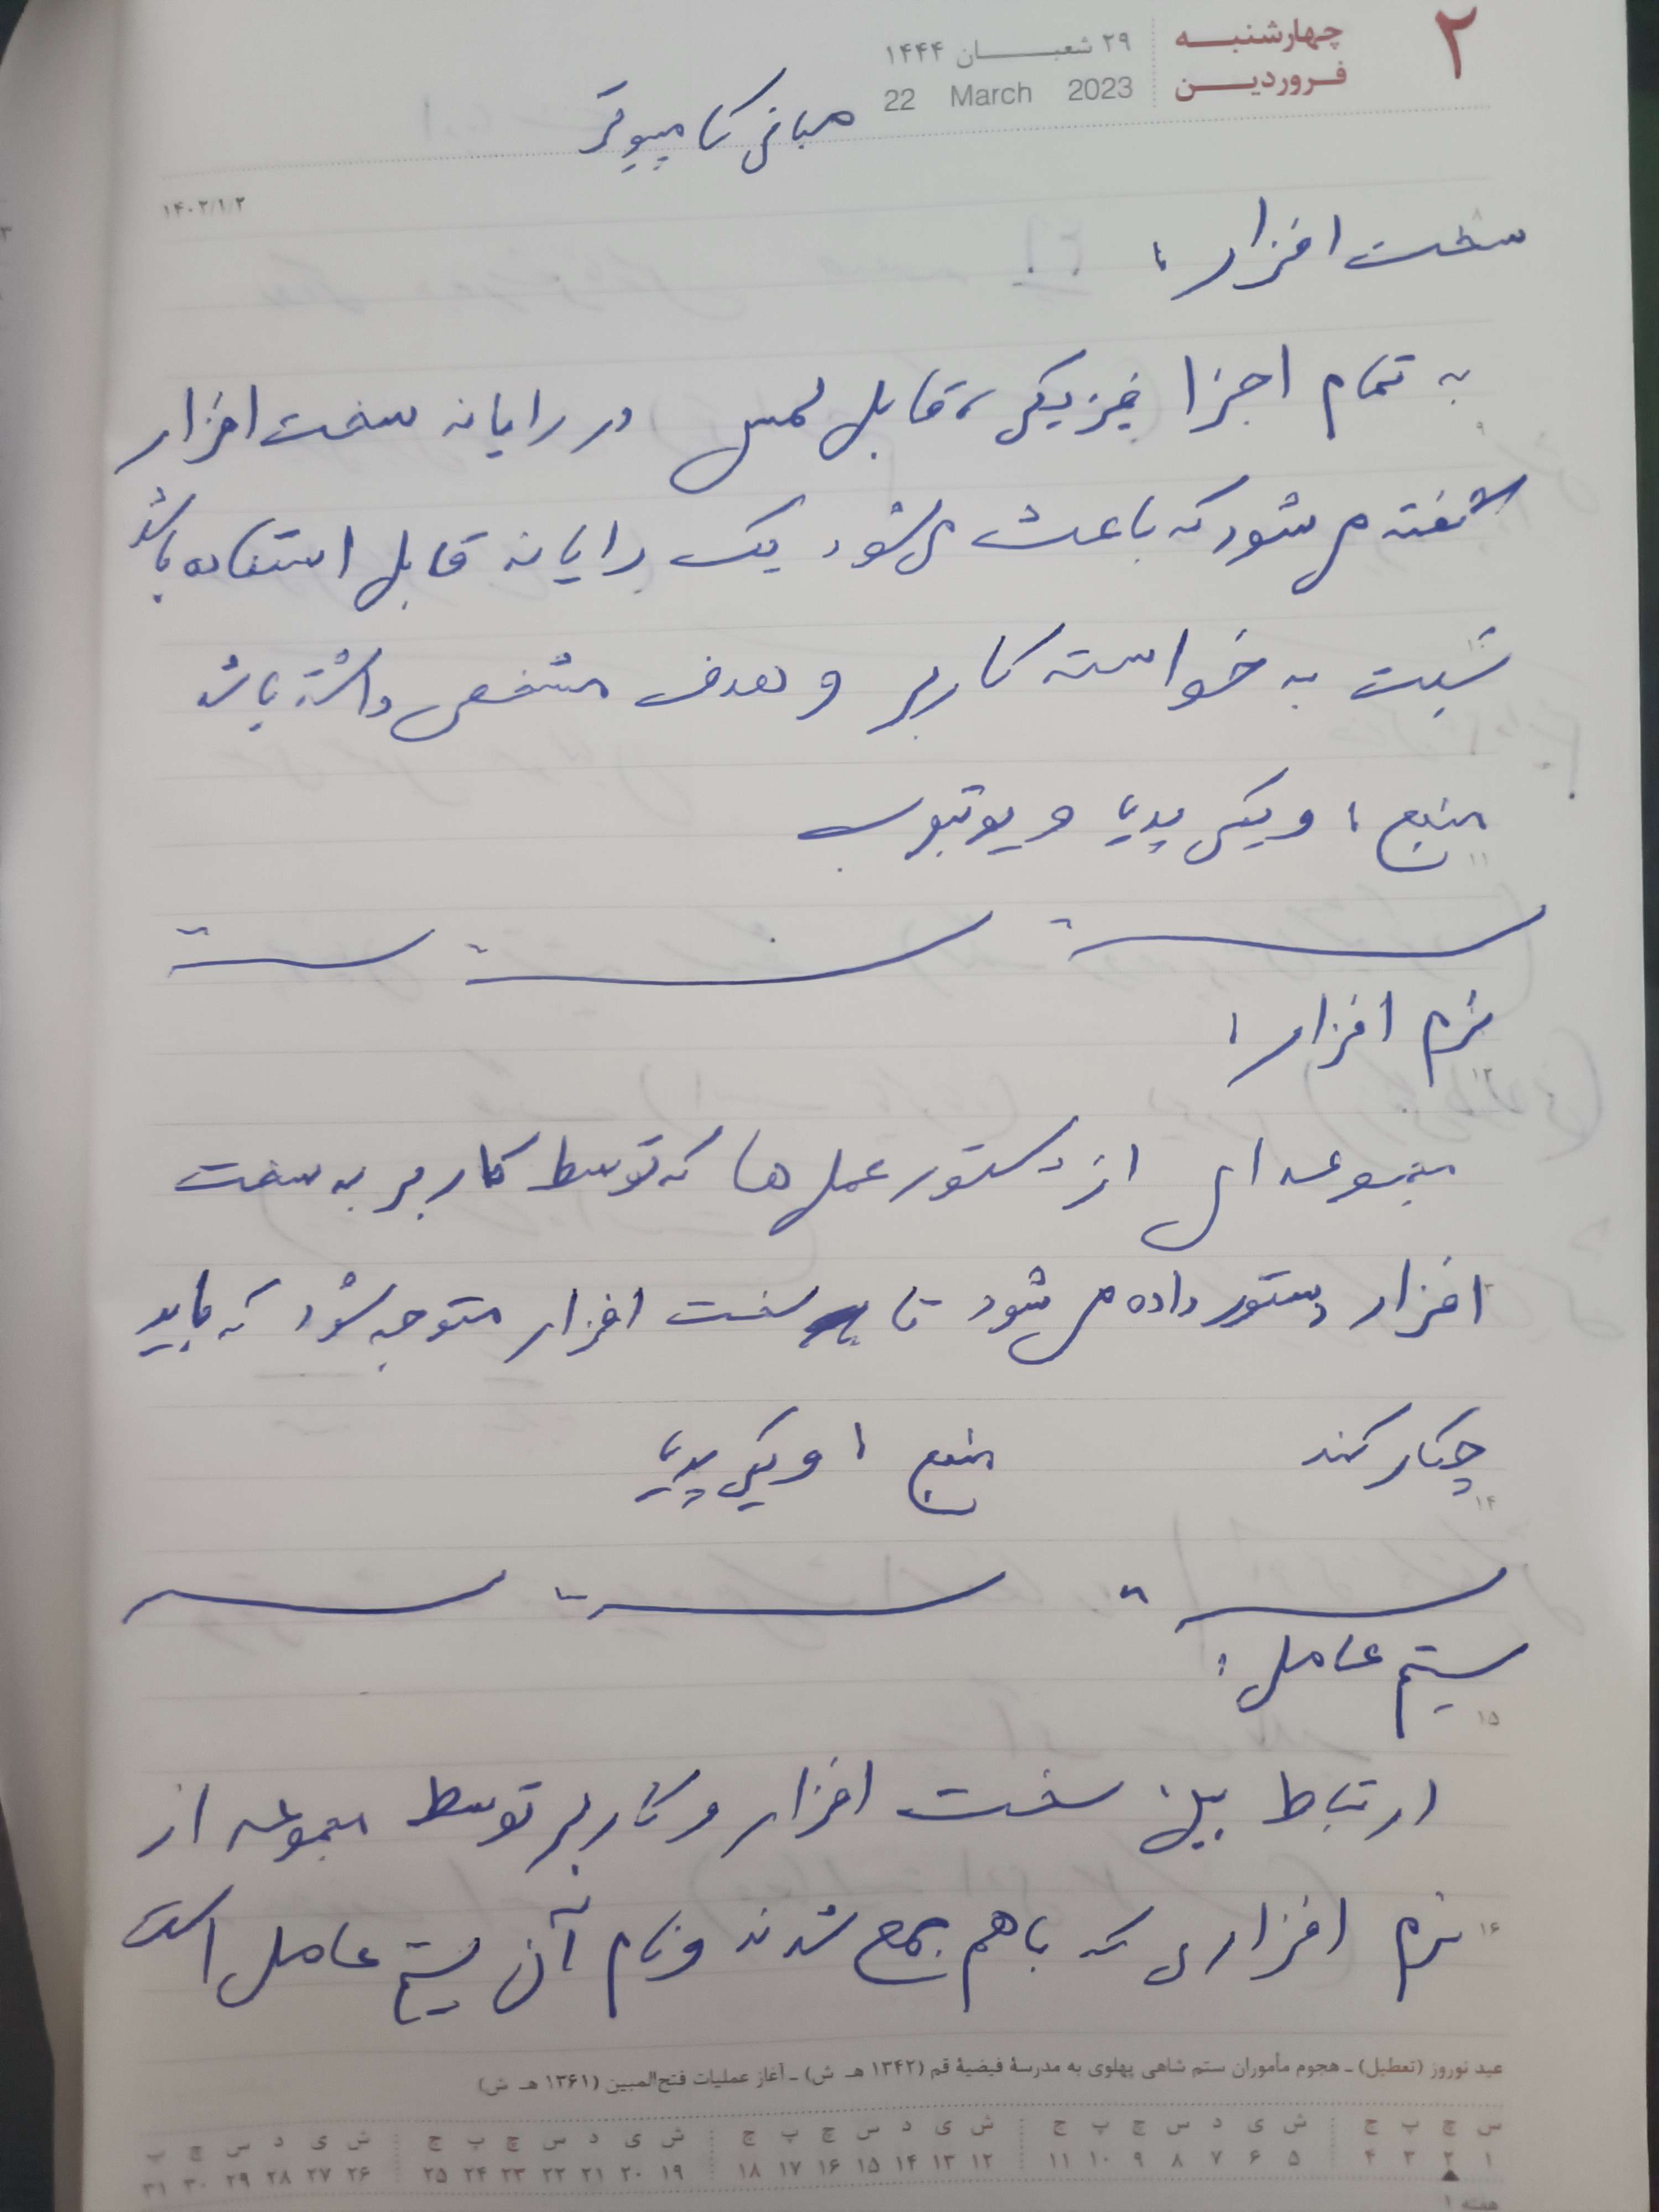 ۲
چهارشنبه
فروردین
۲۹ شعبان ۱۴۴۴
22 March 2023
مبانی کامپیوتر
۱۴۰۲/۱/۲
سخت افزار :
به تمام اجزا فیزیکی، قابل لمس در رایانه سخت افزار
گفته می شود که باعث می شود یک رایانه قابل استفاده باشد
نسبت به خواسته کاربر و هدف مشخص داشته باشد
منبع : ویکی پدیا و یوتیوب
نرم افزار :
مجموعه ای از دستور عمل ها که توسط کاربر به سخت
افزار دستور داده می شود تا سخت افزار متوجه شود که باید
چیکار کند منبع : ویکی پدیا
سیستم عامل :
ارتباط بین سخت افزار و کاربر توسط مجموعه از
نرم افزاری که باهم جمع شدند و نام آن سیستم عامل است
عید نوروز (تعطیل) ـ هجوم مأموران ستم شاهی پهلوی به مدرسهٔ فیضیهٔ قم (۱۳۴۲ هـ ش) ـ آغاز عملیات فتح‌المبین (۱۳۶۱ هـ ش)
س چ پ ج ش ی د س چ پ ج ش ی د س چ پ ج ش ی د س چ پ ج ش ی د س چ پ
۱ ۲ ۳ ۴ ۵ ۶ ۷ ۸ ۹ ۱۰ ۱۱ ۱۲ ۱۳ ۱۴ ۱۵ ۱۶ ۱۷ ۱۸ ۱۹ ۲۰ ۲۱ ۲۲ ۲۳ ۲۴ ۲۵ ۲۶ ۲۷ ۲۸ ۲۹ ۳۰ ۳۱
هفته ۱